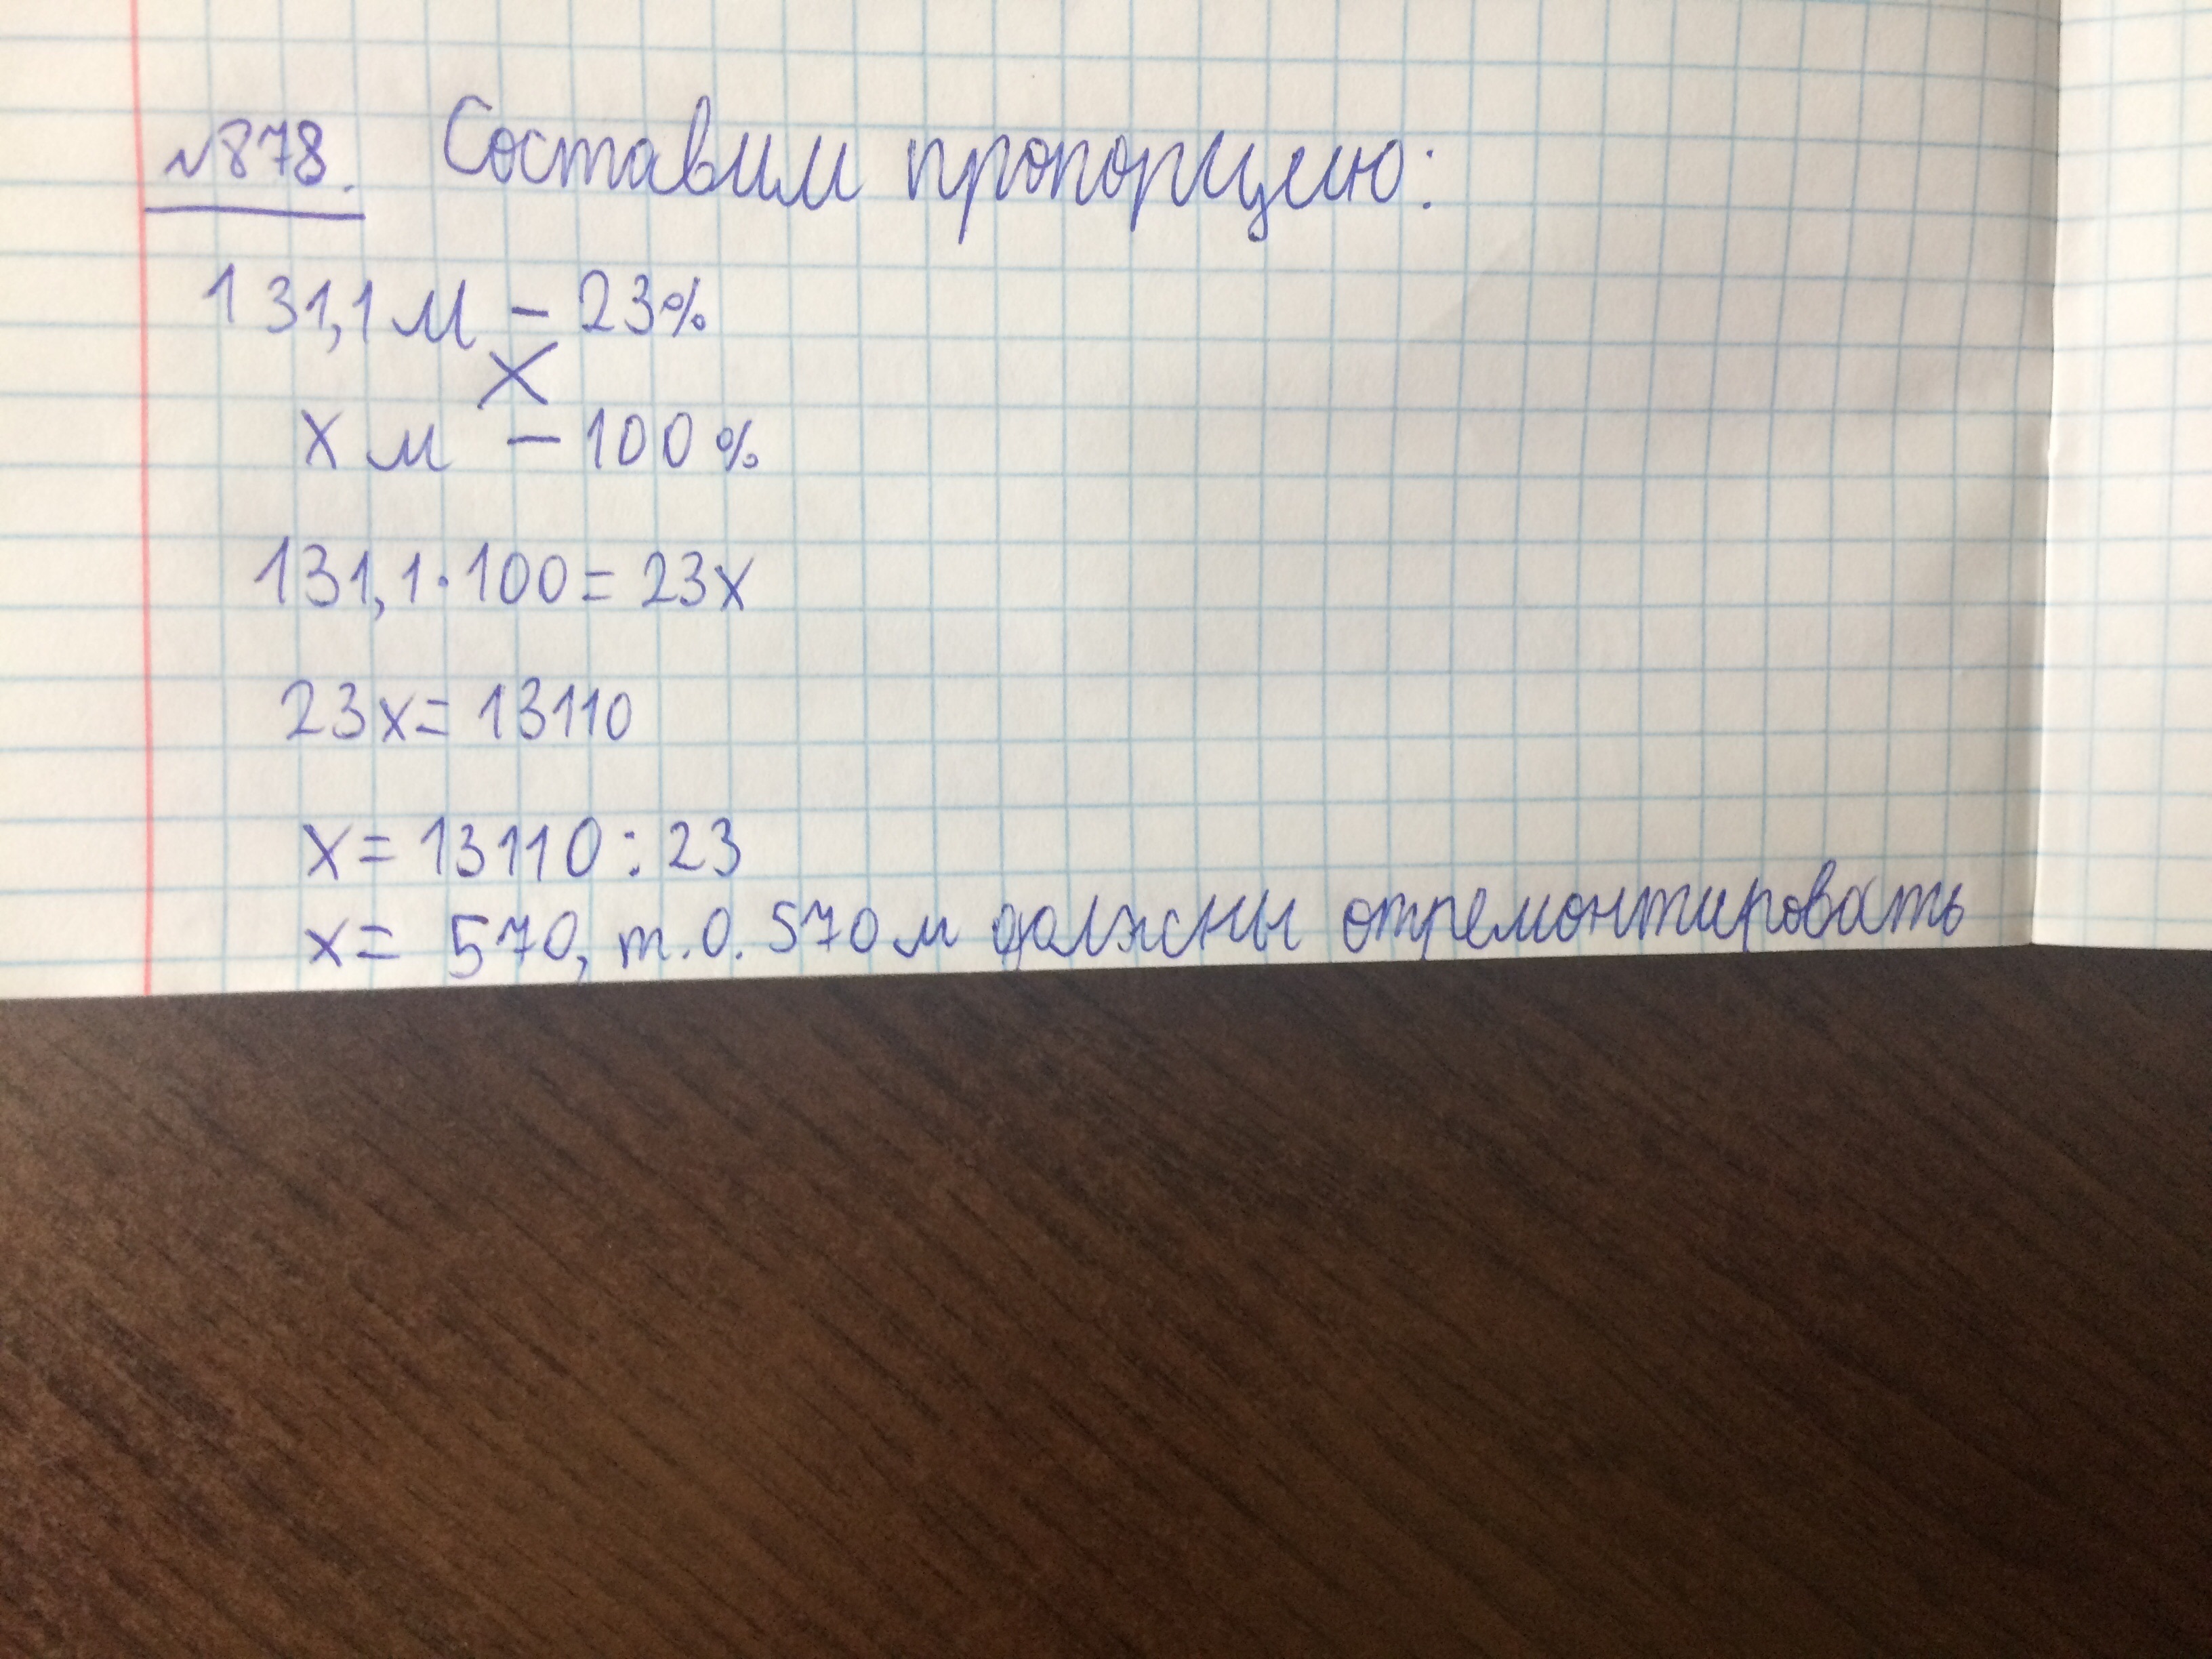 №878. Составим пропорцию:
131,1 м – 23%
X
x м – 100%
131,1·100 = 23x
23x = 13110
x = 13110 : 23
x = 570, т.о. 570 м должны отремонтировать